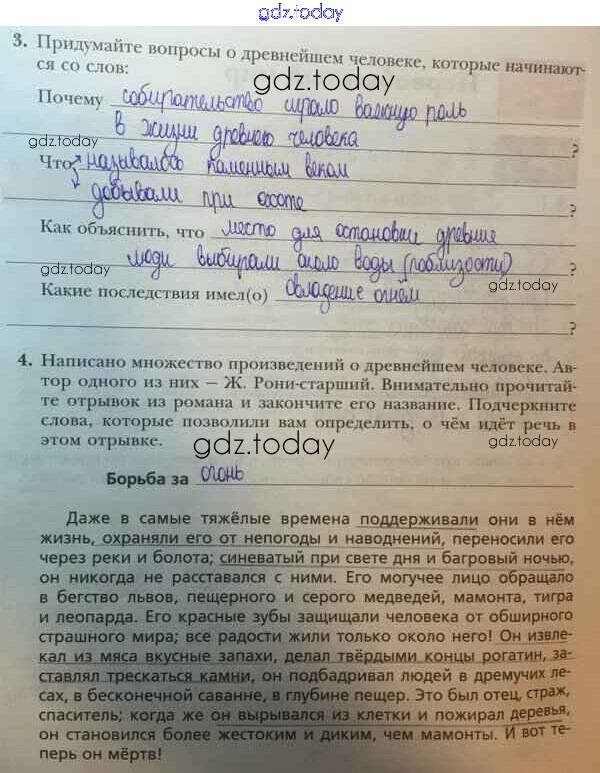 gdz.today
3. Придумайте вопросы о древнейшем человеке, которые начинают-
ся со слов:
gdz.today
Почему собирательство играло важную роль
в жизни древнего человека ?
gdz.today
Что называлось каменным веком
добывали при охоте ?
Как объяснить, что место для остановки древние
люди выбирали около воды (поблизости) ?
gdz.today
gdz.today
Какие последствия имел(о) овладение огнём
?
4. Написано множество произведений о древнейшем человеке. Ав-
тор одного из них – Ж. Рони-старший. Внимательно прочитай-
те отрывок из романа и закончите его название. Подчеркните
слова, которые позволили вам определить, о чём идёт речь в
этом отрывке.
gdz.today
Борьба за огонь
Даже в самые тяжёлые времена поддерживали они в нём
жизнь, охраняли его от непогоды и наводнений, переносили его
через реки и болота; синеватый при свете дня и багровый ночью,
он никогда не расставался с ними. Его могучее лицо обращало
в бегство львов, пещерного и серого медведей, мамонта, тигра
и леопарда. Его красные зубы защищали человека от обширного
страшного мира; все радости жили только около него! Он извле-
кал из мяса вкусные запахи, делал твёрдыми концы рогатин, за-
ставлял трескаться камни, он подбадривал людей в дремучих ле-
сах, в бесконечной саванне, в глубине пещер. Это был отец, страж,
спаситель; когда же он вырывался из клетки и пожирал деревья,
он становился более жестоким и диким, чем мамонты. И вот те-
перь он мёртв!
gdz.today